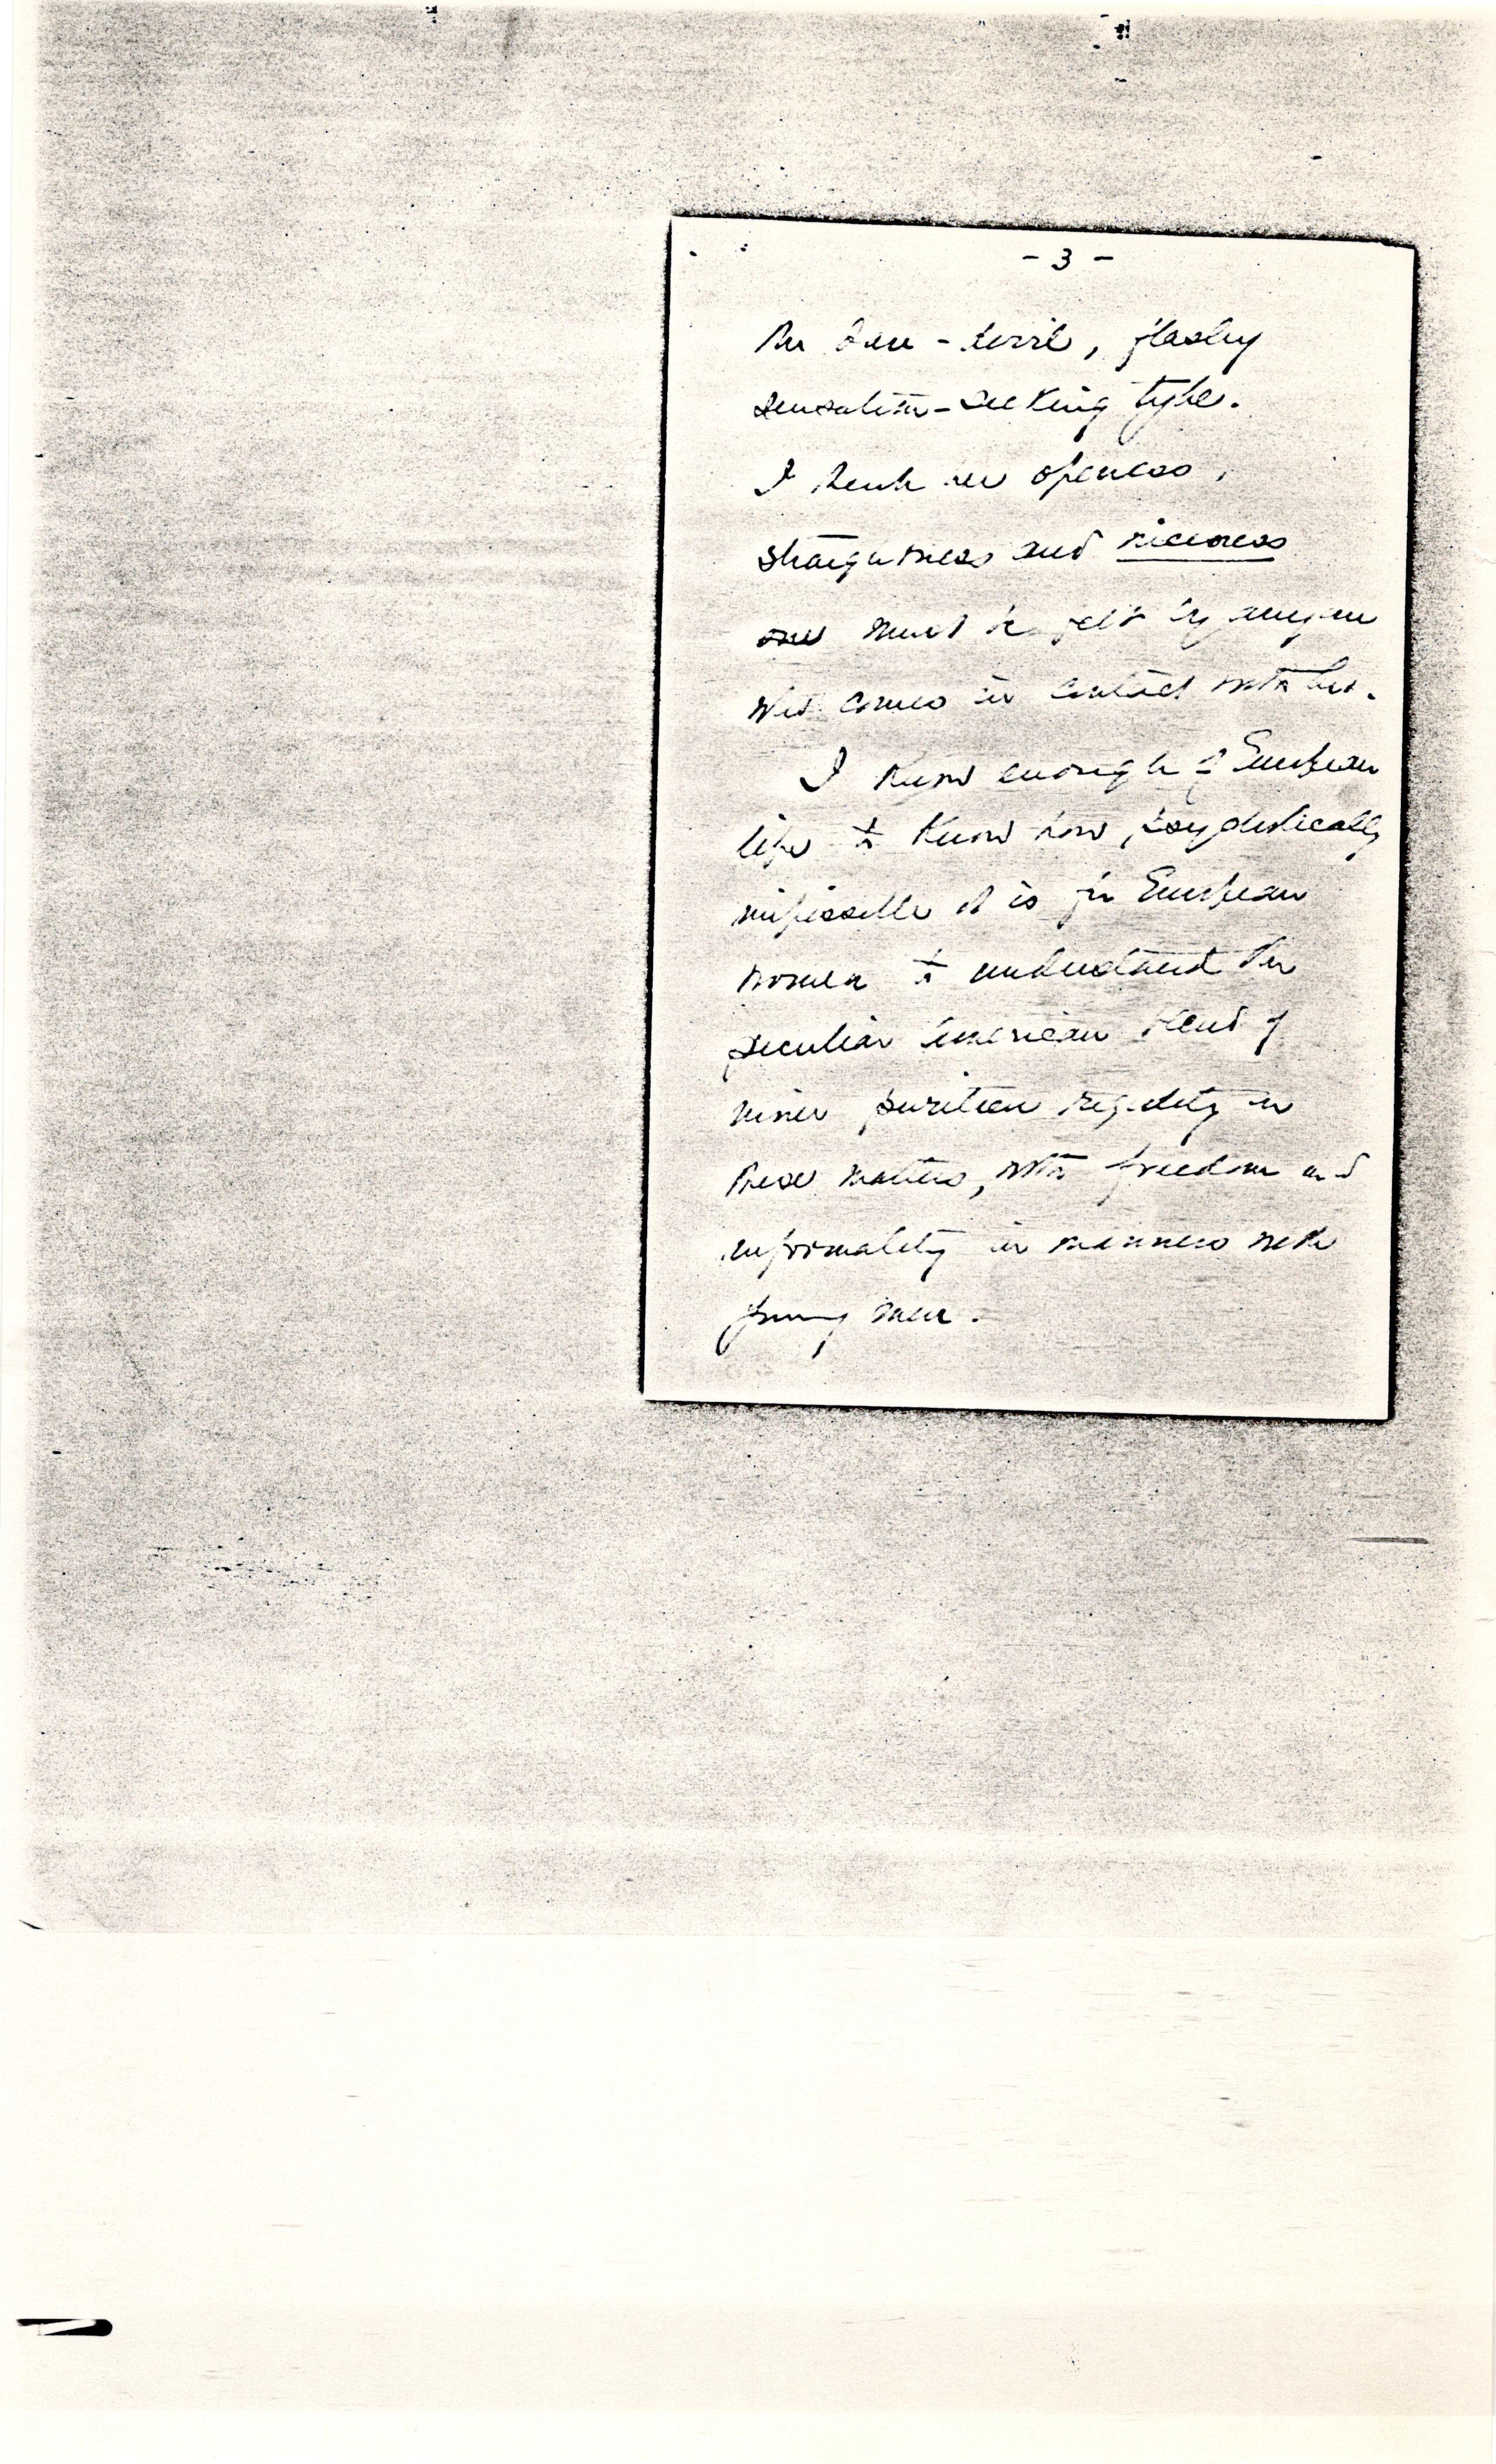 - 3 -
the dare-devil, flashy
sensation-seeking type.
I think her openess,
straightness and niceness
must be felt by anyone
who comes in contact with her.
I know enough of European
life to know how psychologically
impossible it is for European
women to understand the
peculiar American blend of
inner puritan rigidity in
these matters, with freedom and
informality in manners with
young men.